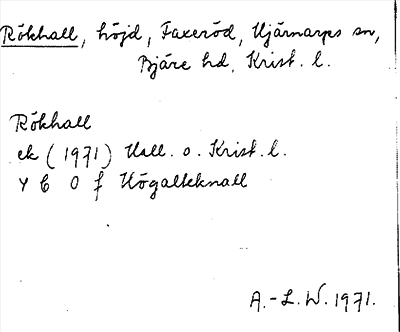 Rökhall, höjd, Faxeröd, Hjärnarps sn,
Bjäre hd, Krist. l.
Rökhall
ek (1971) Hall. o. Krist. l.
4 C 0 f Högalteknall
A.-L. W. 1971.